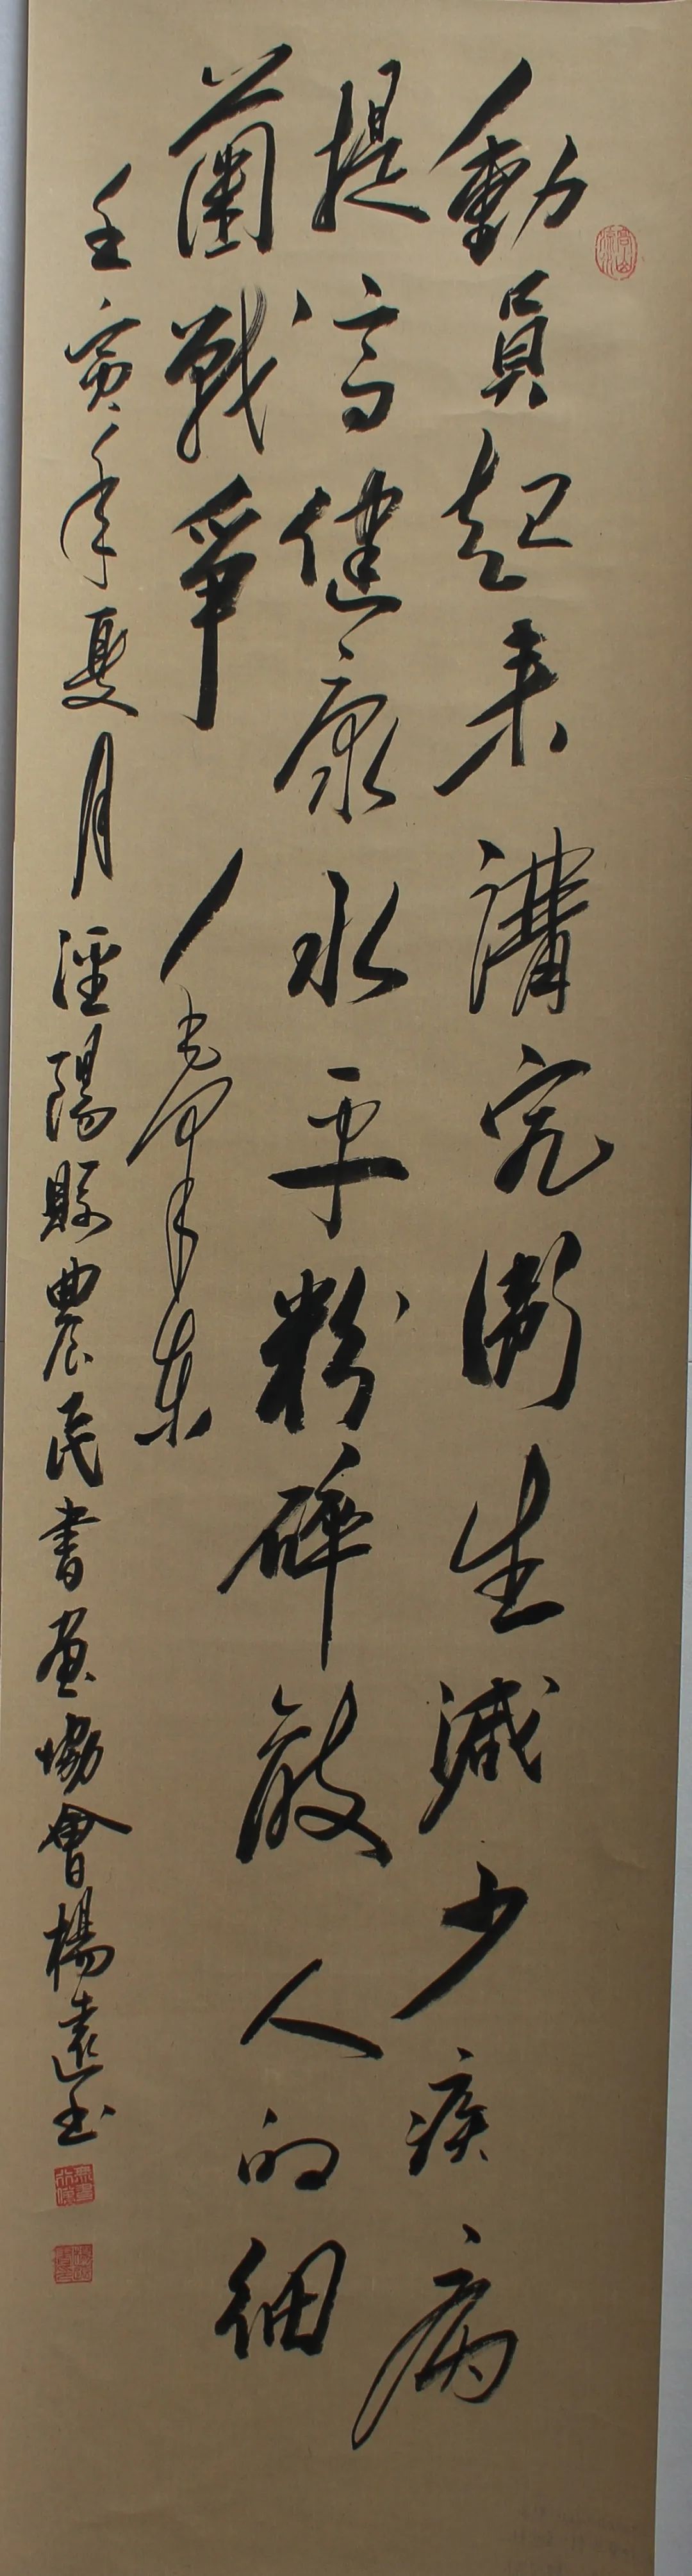 動員起来講究衛生減少疾病
提高健康水平粉碎敵人的細
菌戰爭
毛澤東
壬寅年夏月涇陽縣農民書画協會楊遠玉